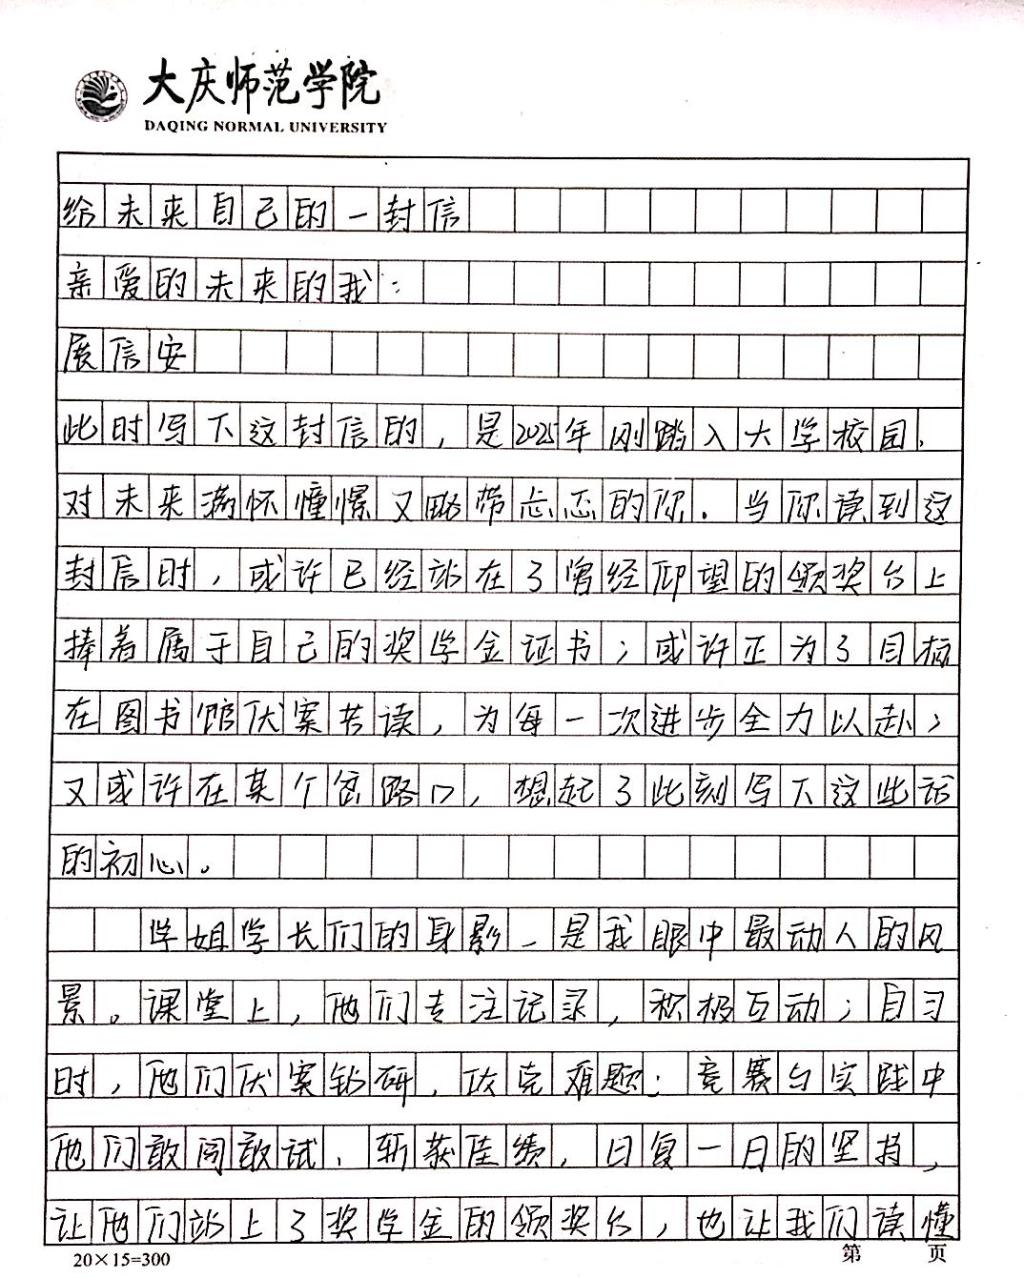 大庆师范学院
DAQING NORMAL UNIVERSITY
给未来自己的一封信
亲爱的未来的我:
展信安
此时写下这封信的,是2025年刚踏入大学校园、
对未来满怀憧憬又略带忐忑的你.当你读到这
封信时,或许已经站在了曾经仰望的颁奖台上
捧着属于自己的奖学金证书;或许正为了目标
在图书馆伏案苦读,为每一次进步全力以赴;
又或许在某个岔路口,想起了此刻写下这些话
的初心。
学姐学长们的身影_是我眼中最动人的风
景。课堂上,他们专注记录,积极互动;自习
时,他们伏案钻研,攻克难题;竞赛与实践中
他们敢闯敢试、斩获佳绩,日复一日的坚持,
让他们站上了奖学金的颁奖台,也让我们读懂
20×15=300
第 页